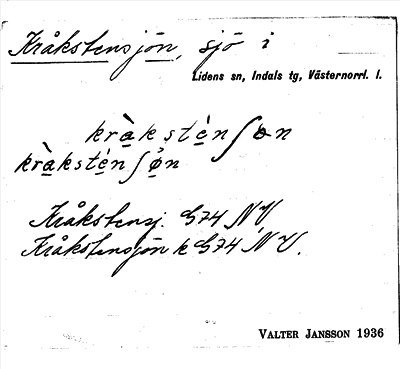 Kråkstensjön, sjö i
Lidens sn, Indals tg, Västernorrl. l.
kràkstènʃøn
kràksténʃøn
Kråkstensj. G74 NV
Kråkstensjön k G74 NV.
VALTER JANSSON 1936